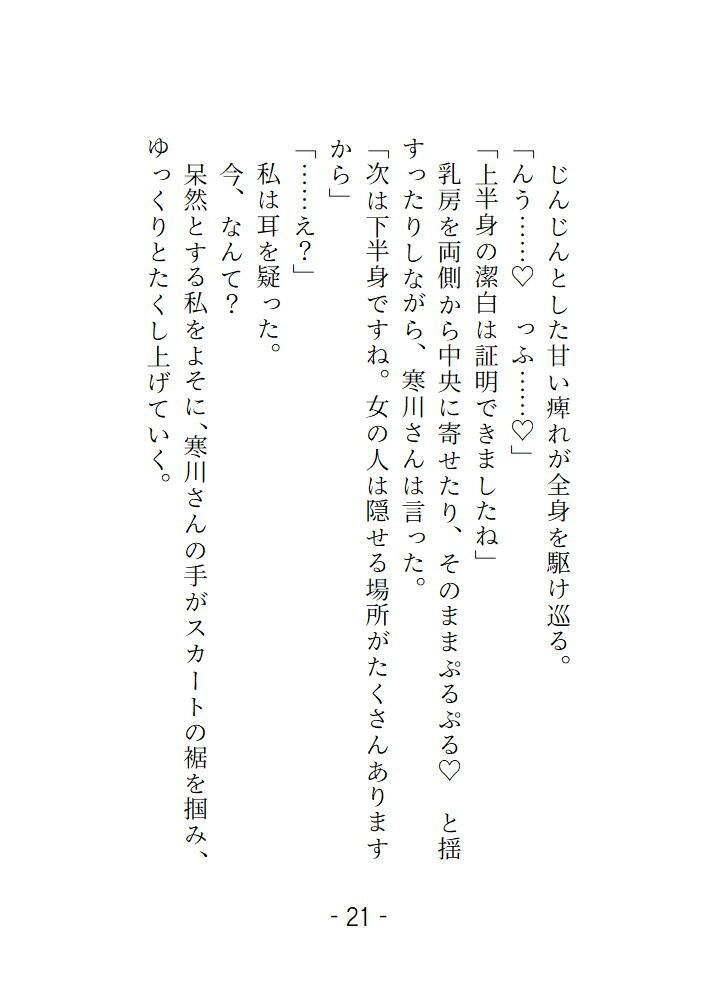 じんじんとした甘い痺れが全身を駆け巡る。
「んう……♡　っふ……♡」
「上半身の潔白は証明できましたね」
乳房を両側から中央に寄せたり、そのままぷるぷる♡　と揺
すったりしながら、寒川さんは言った。
「次は下半身ですね。女の人は隠せる場所がたくさんあります
から」
「……え？」
私は耳を疑った。
今、なんて？
呆然とする私をよそに、寒川さんの手がスカートの裾を掴み、
ゆっくりとたくし上げていく。
- 21 -